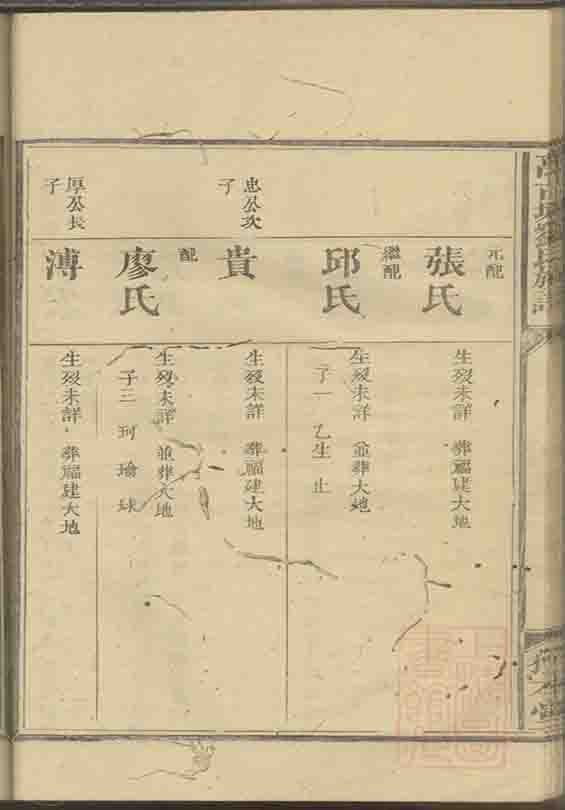 元配
張氏
生歿未詳 葬福建大地
繼配
邱氏
生歿未詳 並葬大地
子一 乙生 止
忠公次
子
貴
生歿未詳 葬福建大地
配
廖氏
生歿未詳 並葬大地
子三 珂 瑜 球
厚公長
子
溥
生歿未詳 葬福建大地